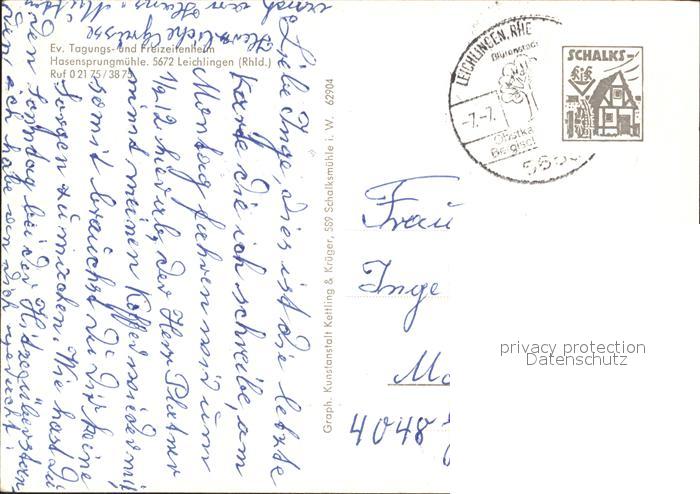 Ev. Tagungs- und Freizeitenheim
Hasensprungmühle. 5672 Leichlingen (Rhld.)
Ruf 0 21 75 / 38 75
Liebe Inge, dies ist die letzte
Karte die ich schreibe, am
Montag fahren wir um
1/2 12 hier ab, der Herr Platner
nimmt meinen Koffer wieder mit
somit brauchst du dir keine
Sorgen zu machen. Wie hast du
den Sonntag bei der Hitze überstan-
den, ich habe an dich gedacht.
Herzliche Grüsse
Graph. Kunstanstalt Kettling & Krüger, 589 Schalksmühle i. W. 62904
LEICHLINGEN, RHE
Blütenstadt
-7.-7.
Obstka
Bergisch
SCHALKS-
Frau
Inge
4048
privacy protection
Datenschutz